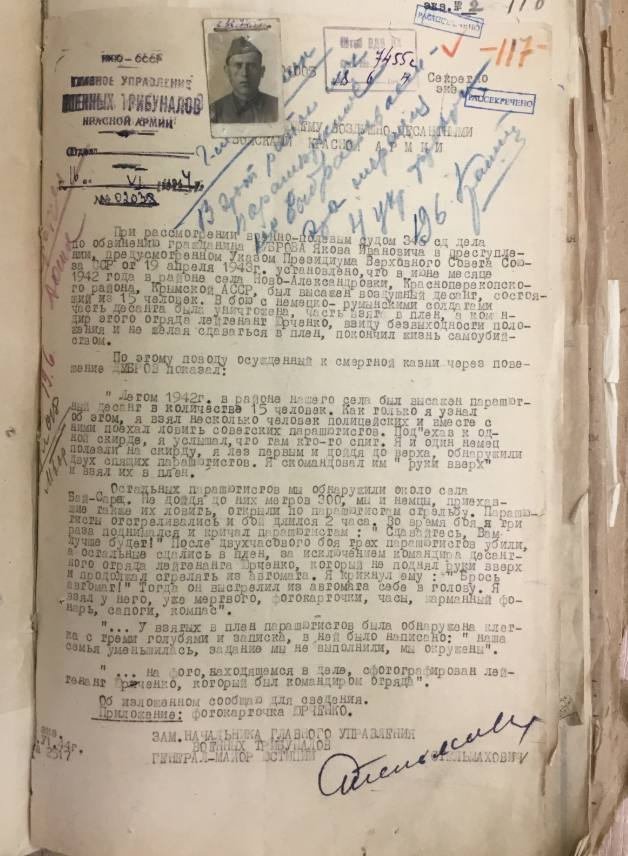 экз. № 2
РАССЕКРЕЧЕНО
-117-
НКЮ-СССР
ГЛАВНОЕ УПРАВЛЕНИЕ
ВОЕННЫХ ТРИБУНАЛОВ
КРАСНОЙ АРМИИ
Отдел
VI
№ 02038
7455с
18 6 4
Секретно
экз.
РАССЕКРЕЧЕНО
ВОЗДУШНО-ДЕСАНТНЫМИ
ВОЙСКАМИ КРАСНОЙ АРМИИ
При рассмотрении военно-полевым судом сд дела
по обвинению гражданина ДУБРОВА Якова Ивановича в преступле-
нии, предусмотренном Указом Президиума Верховного Совета Сою-
за ССР от 19 апреля 1943г. установлено, что в июне месяце
1942 года в районе села Ново-Александровки, Красноперекопско-
го района, Крымской АССР, был высажен воздушный десант, состоя-
щий из 15 человек. В бою с немецко-румынскими солдатами
часть десанта была уничтожена, часть взята в плен, а коман-
дир этого отряда лейтенант Юрченко, ввиду безвыходности поло-
жения и не желая сдаваться в плен, покончил жизнь самоубий-
ством.
По этому поводу осужденный к смертной казни через пове-
шение ДУБРОВ показал:
" Летом 1942г. в районе нашего села был высажен парашют-
ный десант в количестве 15 человек. Как только я узнал
об этом, я взял несколько человек полицейских и вместе с
ними поехал ловить советских парашютистов. Под"ехав к од-
ной скирде, я услышал, что там кто-то спит. Я и один немец
полезли на скирду, я лез первым и дойдя до верха, обнаружили
двух спящих парашютистов. Я скомандовал им " руки вверх"
и взял их в плен.
Остальных парашютистов мы обнаружили около села
Бай-Сарай. Не дойдя до них метров 300, мы и немцы, приехав-
шие также их ловить, открыли по парашютистам стрельбу. Парашю-
тисты отстреливались и бой длился 2 часа. Во время боя я три
раза поднимался и кричал парашютистам : " Сдавайтесь, Вам
лучше будет!" После двухчасового боя трех парашютистов убили,
а остальные сдались в плен, за исключением командира десант-
ного отряда лейтенанта Юрченко, который не поднял руки вверх
и продолжал стрелять из автомата. Я крикнул ему : " Брось
автомат!" Тогда он выстрелил из автомата себе в голову. Я
взял у него, уже мертвого, фотокарточки, часы, карманный фо-
нарь, сапоги, компас".
"... У взятых в плен парашютистов была обнаружена клет-
ка с тремя голубями и записка, в ней было написано: " наша
семья уменьшилась, задание мы не выполнили, мы окружены".
" ... на фото, находящемся в деле, сфотографирован лей-
тенант Юрченко, который был командиром отряда".
Об изложенном сообщаю для сведения.
Приложение: фотокарточка ЮРЧЕНКО.
ЗАМ.НАЧАЛЬНИКА ГЛАВНОГО УПРАВЛЕНИЯ
ВОЕННЫХ ТРИБУНАЛОВ
ГЕНЕРАЛ-МАЙОР ЮСТИЦИИ